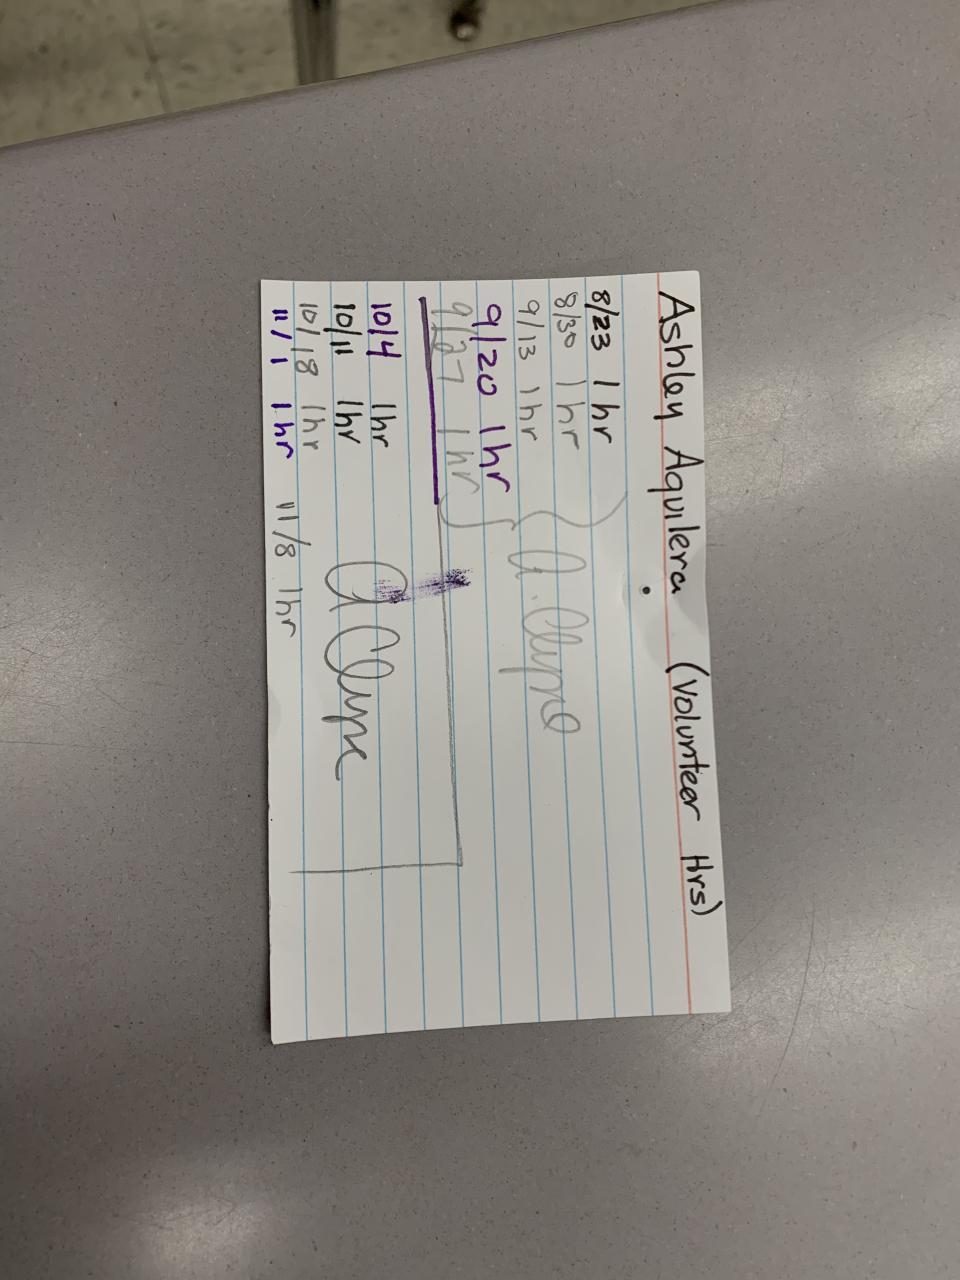 Ashley Aquilera (Volunteer Hrs)
8/23 1 hr
8/30 1 hr
9/13 1 hr
9/20 1 hr
9/27 1 hr
10/4 1hr
10/11 1hr
10/18 1hr
11/1 1hr 11/8 1hr